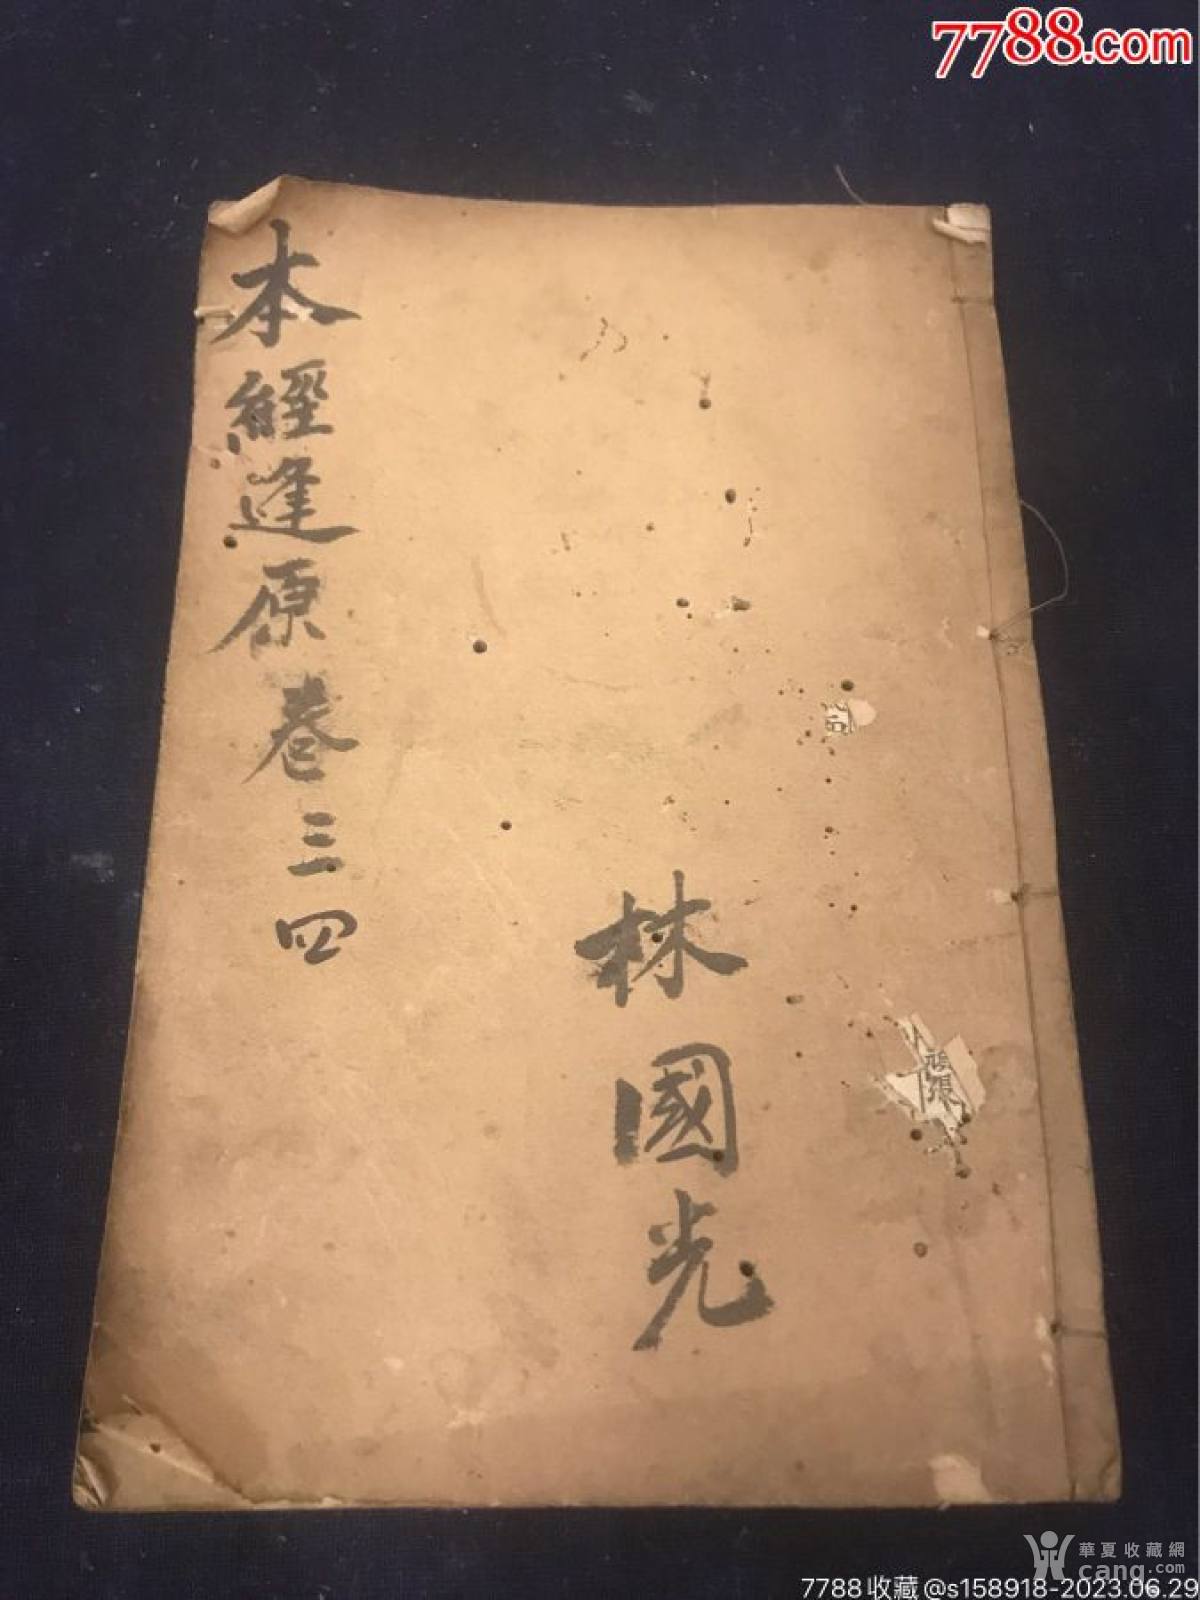 7788.com
本經逢原卷三四
林國光
張
華夏收藏網
cang.com
7788收藏@s158918-2023.06.29